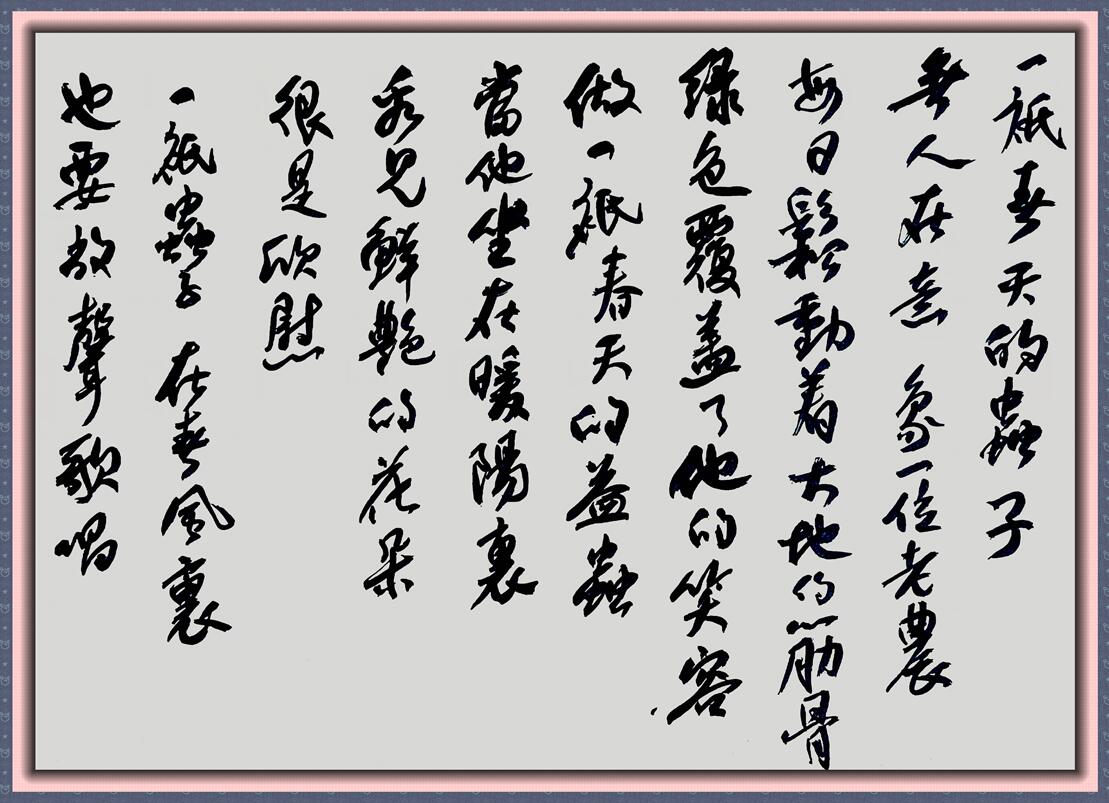 一祇春天的蟲子
無人在意 象一位老農
每日鬆動着大地的筋骨
綠色覆盖了他的笑容
做一祇春天的益蟲
當他坐在暖陽裏
看見鮮艷的花朵
很是欣慰
一祇蟲子 在春風裏
也要放聲歌唱